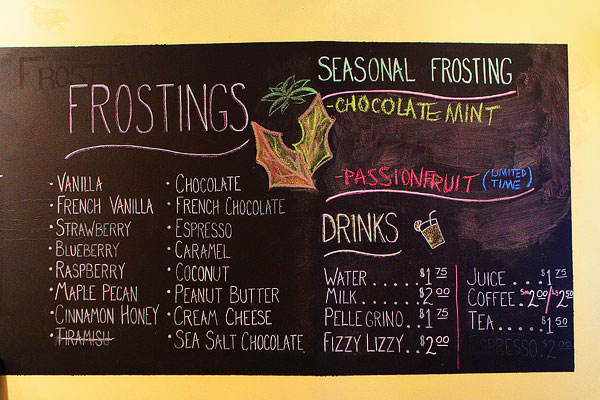 FROSTINGS
VANILLA
FRENCH VANILLA
STRAWBERRY
BLUEBERRY
RASPBERRY
MAPLE PECAN
CINNAMON HONEY
TIRAMISU
CHOCOLATE
FRENCH CHOCOLATE
ESPRESSO
CARAMEL
COCONUT
PEANUT BUTTER
CREAM CHEESE
SEA SALT CHOCOLATE
SEASONAL FROSTING
-CHOCOLATE MINT
-PASSIONFRUIT (LIMITED TIME)
DRINKS
WATER......$1 75
MILK......$2 00
PELLEGRINO..$1 75
FIZZY LIZZY..$2 00
JUICE....$1 75
COFFEE..Sm 2 00/Lg 2 50
TEA....$1 50
ESPRESSO $2 00